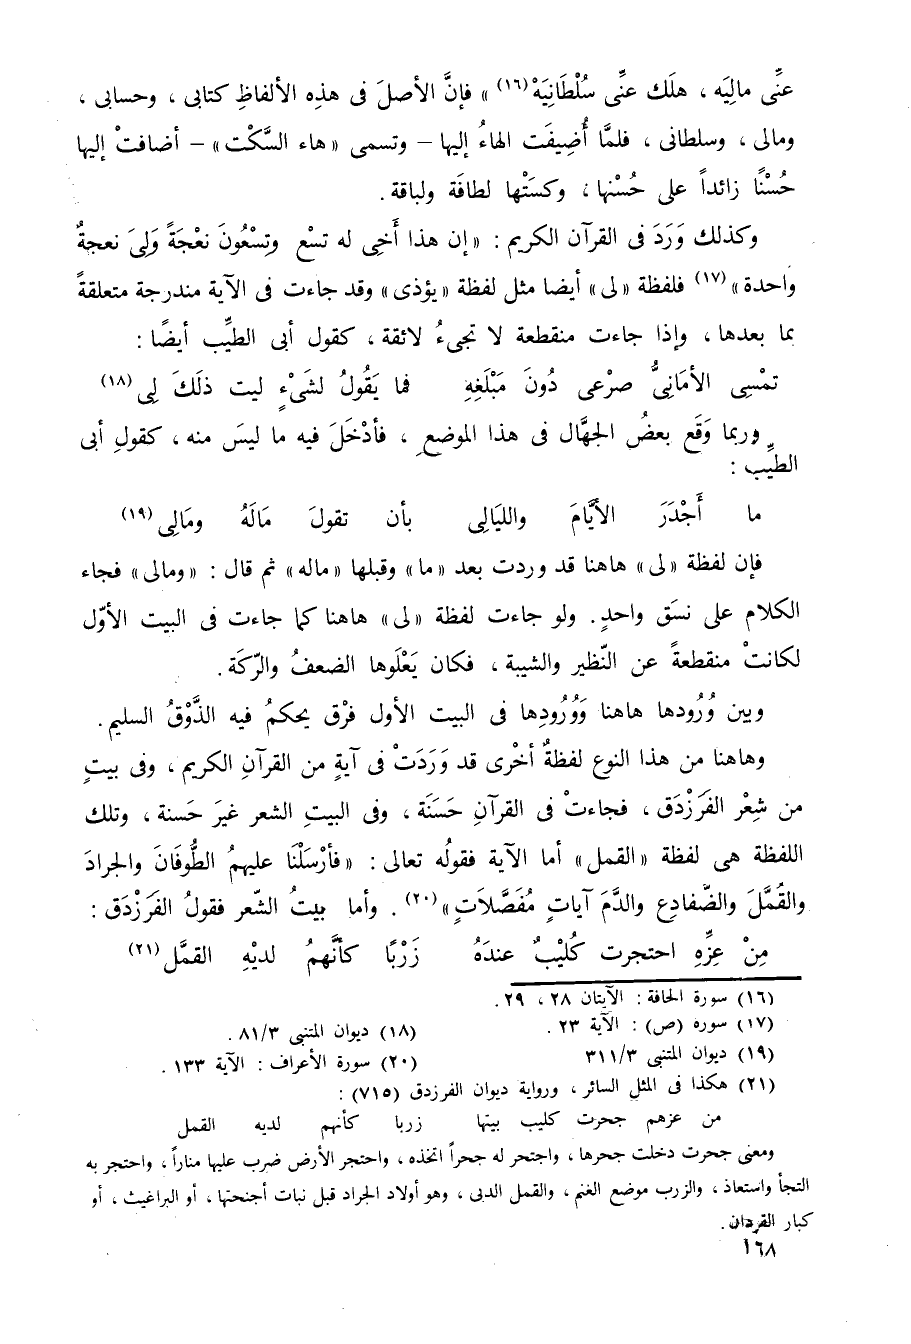 عنِّى مالِيَه ، هلَك عنِّى سُلْطَانِيَهْ (١٦) » فإنَّ الأصلَ فى هذِه الألفاظِ كتابى ، وحسابى ،
ومالى ، وسلطانى ، فلمَّا أُضِيفَت الهاءُ إليها – وتسمى « هاء السَّكْت » – أضافتْ إليها
حُسْنًا زائداً على حُسْنها ، وكستْها لطافَة ولباقة .
وكذلك وَرَدَ فى القرآن الكريم : « إن هذا أَخِى له تسْع وتِسْعُونَ نعْجَةً وَلِىَ نعجةٌ
واحدة » (١٧) فلفظة « لى » أيضا مثل لفظة « يؤذى » وقد جاءت فى الآية مندرجة متعلقةً
بما بعدها ، وإذا جاءت منقطعة لا تجىءُ لائقة ، كقول أبى الطيِّب أيضًا :
تمْسِى الأمَانِىُّ صرْعى دُونَ مَبْلَغِهِ فما يَقُولُ لشَىْءٍ ليت ذلَكَ لِى (١٨)
وربما وَقَع بعضُ الجهَّال فى هذا الموضعِ ، فأدْخَلَ فيه ما ليسَ منه ، كقولِ أبى
الطيِّب :
ما أَجْدَرَ الأيَّامَ والليَالِى بأن تقولَ مَالَهُ ومَالِى (١٩)
فإن لفظة « لى » هاهنا قد وردت بعد « ما » وقبلها « ماله » ثم قال : « ومالى » فجاء
الكلام على نسَق واحدٍ . ولو جاءت لفظة « لى » هاهنا كما جاءت فى البيت الأوّل
لكانتْ منقطعةً عن النّظير والشبية ، فكان يَعْلَوها الضعفُ والرّكَة .
وبين وُرُودها هاهنا وَوُرُودِها فى البيت الأول فرْق يحكمُ فيه الذَّوْقُ السليم .
وهاهنا من هذا النوع لفظةٌ أخْرى قد وَرَدَتْ فى آيةٍ من القرآنِ الكريم ، وفى بيتٍ
من شِعْر الفَرَزْدَق ، فجاءتْ فى القرآنِ حَسَنَة ، وفى البيتِ الشعر غيرَ حَسنة ، وتلك
اللفظة هى لفظة « القمل » أما الآية فقولُه تعالى : « فأرْسَلْنَا عليهمُ الطُّوفَانَ والجرادَ
والقُمَّلَ والضّفادِع والدَّمَ آياتٍ مُفَصَّلاَتٍ » (٢٠) . وأما بيتُ الشعر فقولُ الفَرَزْدَق :
مِنْ عِزِّهِ احتجرت كُليْبٌ عندَهُ زَرْبًا كأنَّهمُ لديْهِ القمَّل (٢١)
(١٦) سورة الحاقة : الآيتان ٢٨ ، ٢٩ .
(١٧) سورة (ص) : الآية ٢٣ . (١٨) ديوان المتنبى ٨١/٣ .
(١٩) ديوان المتنبى ٣١١/٣ (٢٠) سورة الأعراف : الآية ١٣٣ .
(٢١) هكذا فى المثل السائر ، ورواية ديوان الفرزدق (٧١٥) :
من عزهم جحرت كليب بيتها زربا كأنهم لديه القمل
ومعنى جحرت دخلت جحرها ، واجتحر له جحراً اتخذه ، واحتجر الأرض ضرب عليها مناراً ، واحتجر به
التجأ واستعاذ ، والزرب موضع الغنم ، والقمل الدبى ، وهو أولاد الجراد قبل نبات أجنحتها ، أو البراغيث ، أو
كبار القردان .
١٦٨